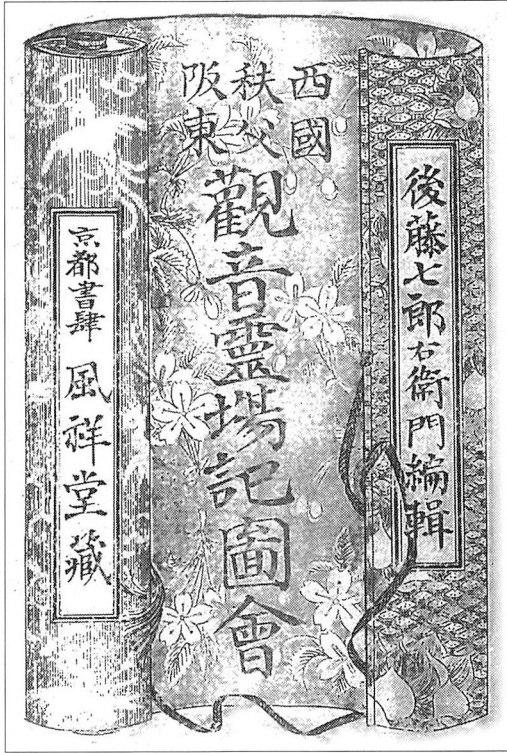 後藤七郎右衛門編輯
西國
秩父
阪東
觀音靈場記圖會
京都書肆 風祥堂藏